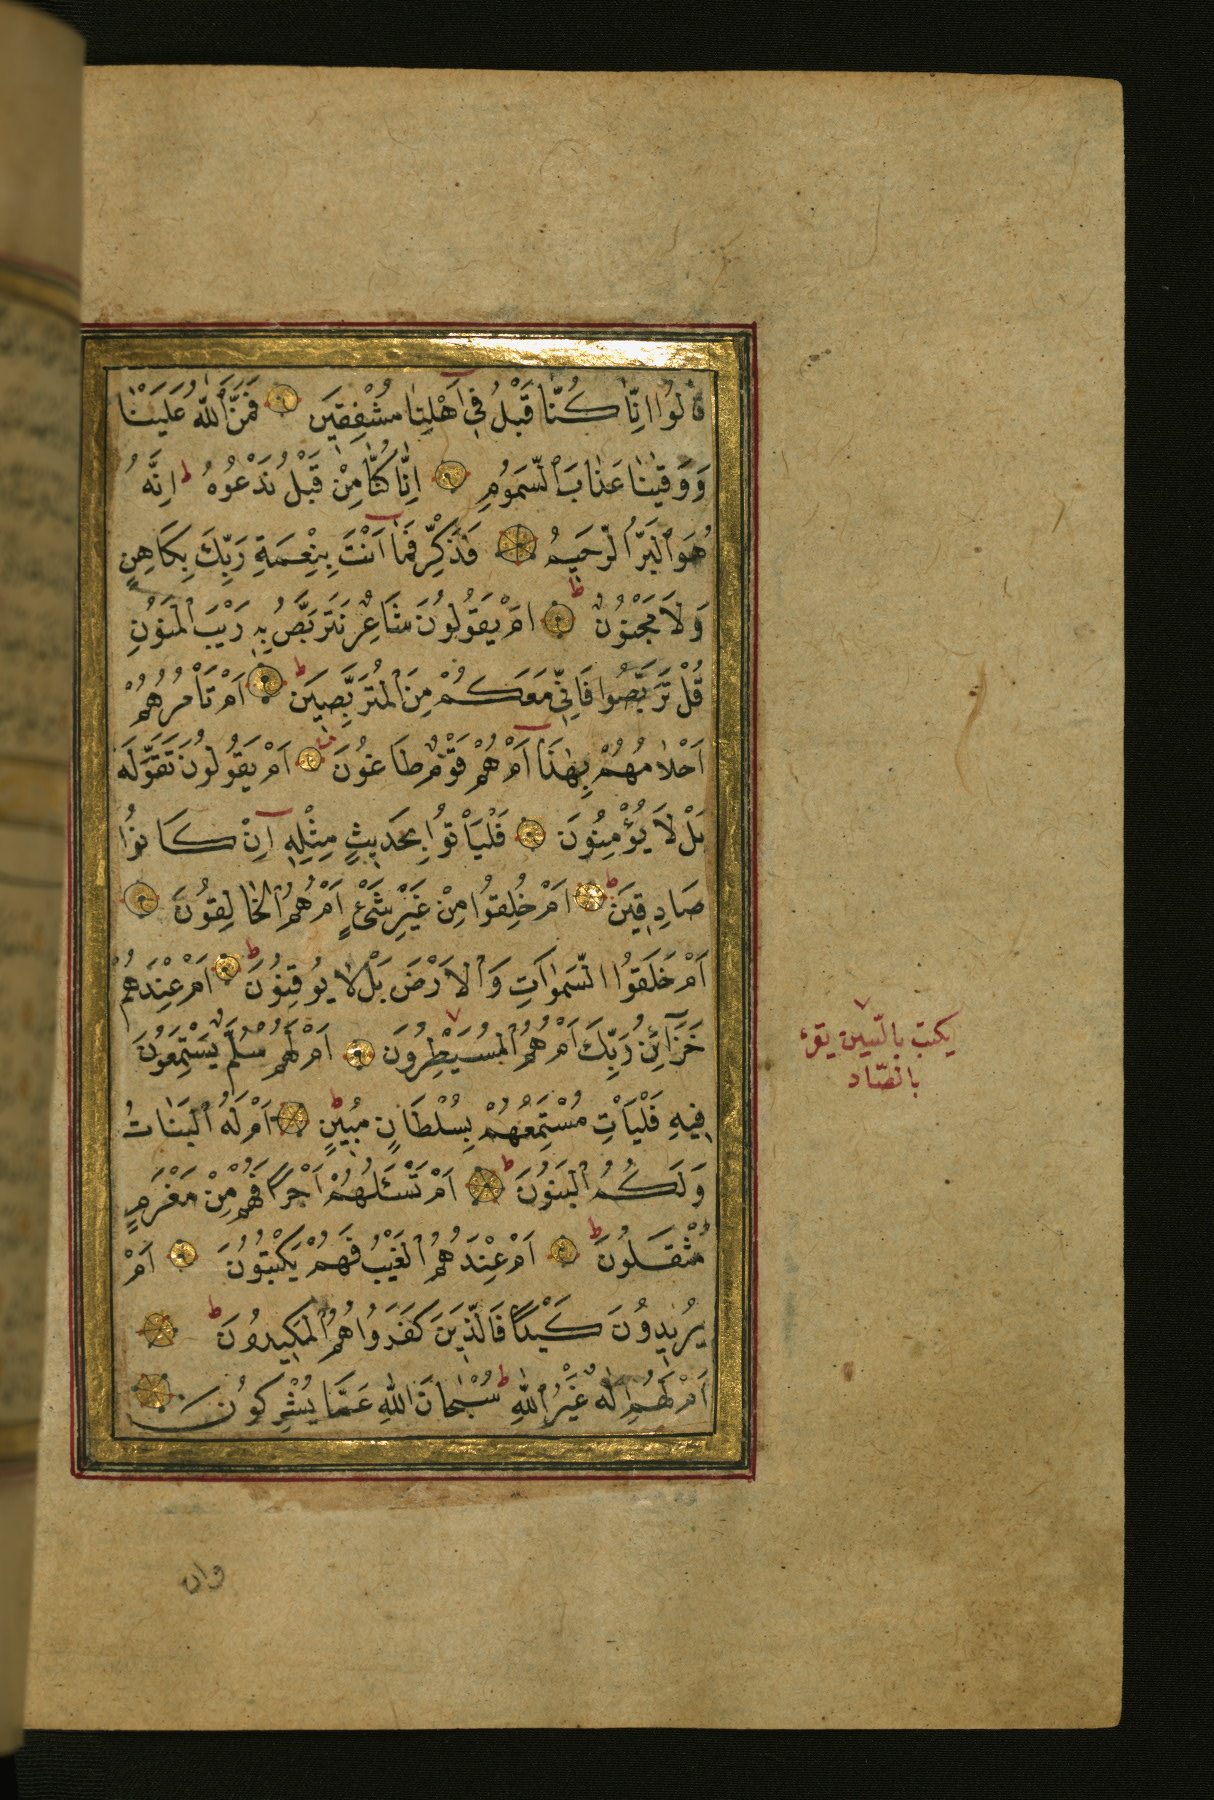 قَالُوا اِنَّا كُنَّا قَبْلُ فِي اَهْلِنَا مُشْفِقِينَ فَمَنَّ اللّٰهُ عَلَيْنَا
وَوَقٰينَا عَذَابَ السَّمُومِ اِنَّا كُنَّا مِنْ قَبْلُ نَدْعُوهُ ط اِنَّهُ
هُوَ الْبَرُّ الرَّحِيمُ فَذَكِّرْ فَمَا اَنْتَ بِنِعْمَةِ رَبِّكَ بِكَاهِنٍ
وَلَا مَجْنُونٍ ط اَمْ يَقُولُونَ شَاعِرٌ نَتَرَبَّصُ بِهِ رَيْبَ الْمَنُونِ
قُلْ تَرَبَّصُوا فَاِنِّي مَعَكُمْ مِنَ الْمُتَرَبِّصِينَ ط اَمْ تَأْمُرُهُمْ
اَحْلَامُهُمْ بِهٰذَا اَمْ هُمْ قَوْمٌ طَاغُونَ اَمْ يَقُولُونَ تَقَوَّلَهُ
بَلْ لَا يُؤْمِنُونَ فَلْيَأْتُوا بِحَدِيثٍ مِثْلِهِ اِنْ كَانُوا
صَادِقِينَ ط اَمْ خُلِقُوا مِنْ غَيْرِ شَيْءٍ اَمْ هُمُ الْخَالِقُونَ
اَمْ خَلَقُوا السَّمٰوَاتِ وَالْاَرْضَ بَلْ لَا يُوقِنُونَ ط اَمْ عِنْدَهُمْ
خَزَآئِنُ رَبِّكَ اَمْ هُمُ الْمُسَيْطِرُونَ اَمْ لَهُمْ سُلَّمٌ يَسْتَمِعُونَ
فِيهِ فَلْيَأْتِ مُسْتَمِعُهُمْ بِسُلْطَانٍ مُبِينٍ ط اَمْ لَهُ الْبَنَاتُ
وَلَكُمُ الْبَنُونَ ط اَمْ تَسْئَلُهُمْ اَجْرًا فَهُمْ مِنْ مَغْرَمٍ
مُثْقَلُونَ ط اَمْ عِنْدَهُمُ الْغَيْبُ فَهُمْ يَكْتُبُونَ اَمْ
يُرِيدُونَ كَيْدًا فَالَّذِينَ كَفَرُوا هُمُ الْمَكِيدُونَ ط
اَمْ لَهُمْ اِلٰهٌ غَيْرُ اللّٰهِ ط سُبْحَانَ اللّٰهِ عَمَّا يُشْرِكُونَ
يكتب بالسّين يقرء
بالصّاد
وان